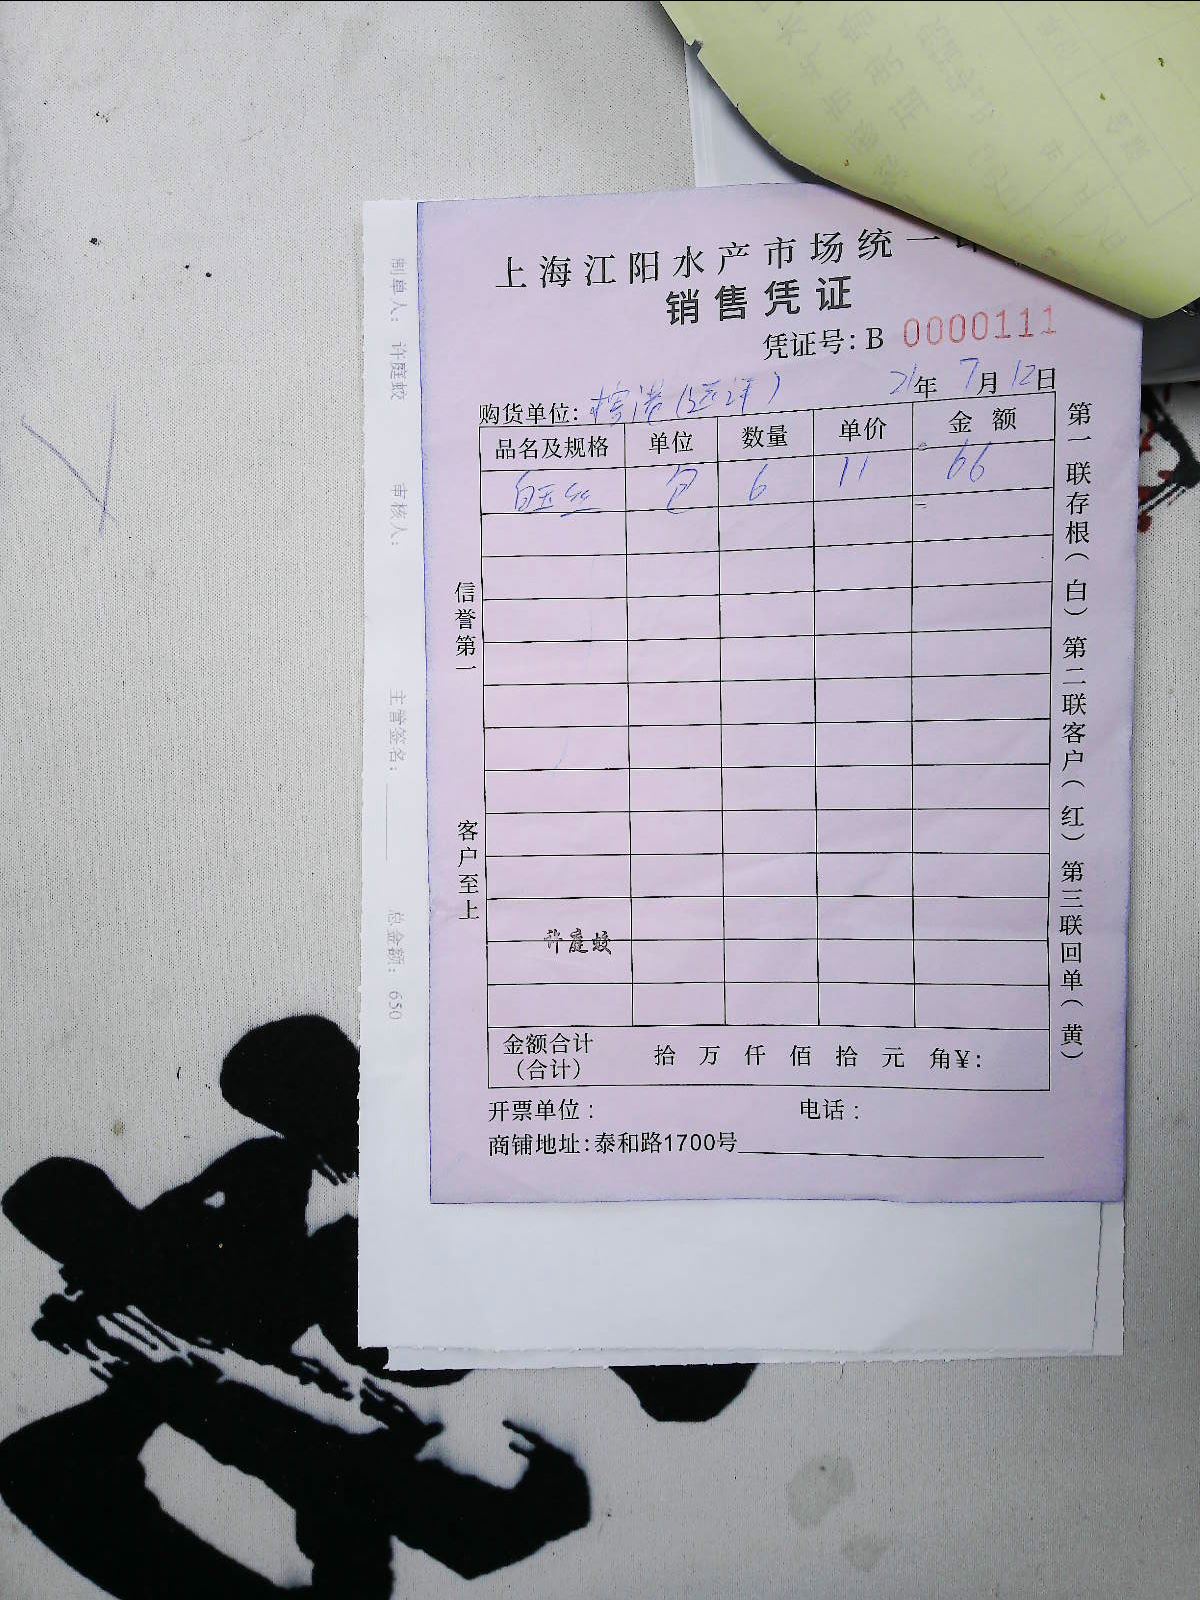 上海江阳水产市场统一
销售凭证
凭证号: B 0000111
购货单位: 21年 7月 12日
品名及规格 单位 数量 单价 金额
白玉丝 包 6 11 66
许庭蛟
金额合计 拾 万 仟 佰 拾 元 角¥:
(合计)
开票单位: 电话:
商铺地址:泰和路1700号
信誉第一 客户至上
第一联存根(白) 第二联客户(红) 第三联回单(黄)
制单人: 许庭蛟 审核人: 主管签名: 总金额: 650